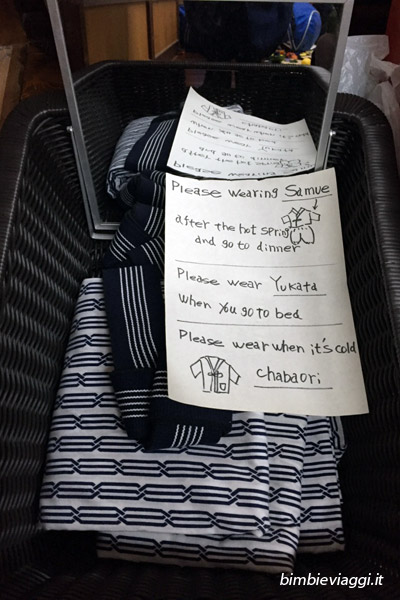 Please wearing Samue
after the hot spring
and go to dinner
Please wear Yukata
when you go to bed
Please wear when it's cold
chabaori
bimbieviaggi.it